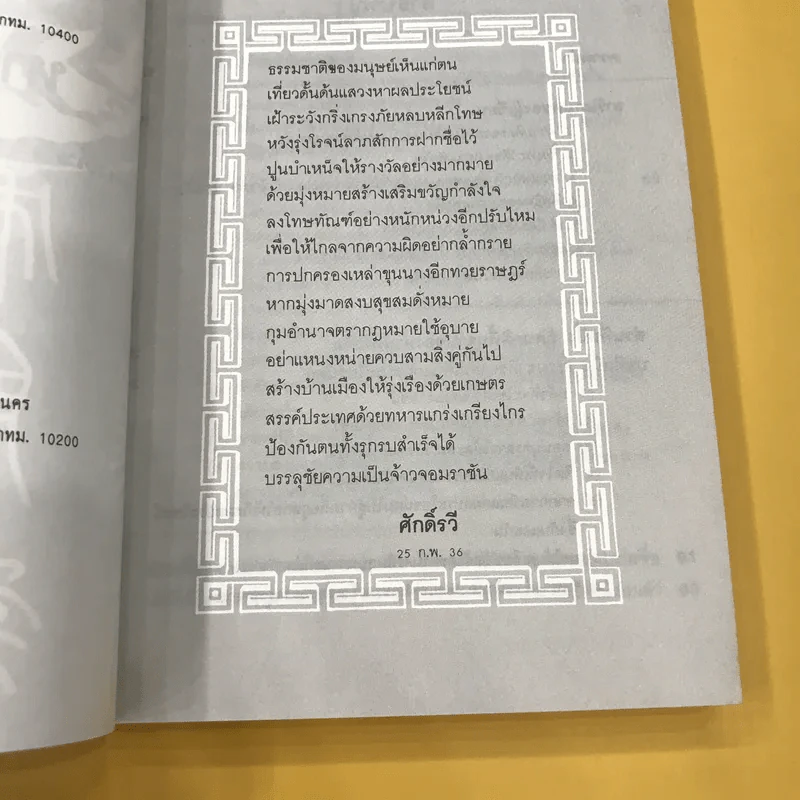 กทม. 10400
นคร
กทม. 10200
ธรรมชาติของมนุษย์เห็นแก่ตน
เที่ยวดั้นด้นแสวงหาผลประโยชน์
เฝ้าระวังกริ่งเกรงภัยหลบหลีกโทษ
หวังรุ่งโรจน์ลาภสักการฝากชื่อไว้
ปูนบำเหน็จให้รางวัลอย่างมากมาย
ด้วยมุ่งหมายสร้างเสริมขวัญกำลังใจ
ลงโทษทัณฑ์อย่างหนักหน่วงอีกปรับไหม
เพื่อให้ไกลจากความผิดอย่ากล้ำกราย
การปกครองเหล่าขุนนางอีกทวยราษฎร์
หากมุ่งมาดสงบสุขสมดั่งหมาย
กุมอำนาจตรากฎหมายใช้อุบาย
อย่าแหนงหน่ายควบสามสิ่งคู่กันไป
สร้างบ้านเมืองให้รุ่งเรืองด้วยเกษตร
สรรค์ประเทศด้วยทหารแกร่งเกรียงไกร
ป้องกันตนทั้งรุกรบสำเร็จได้
บรรลุชัยความเป็นจ้าวจอมราชัน
ศักดิ์รวี
25 ก.พ. 36